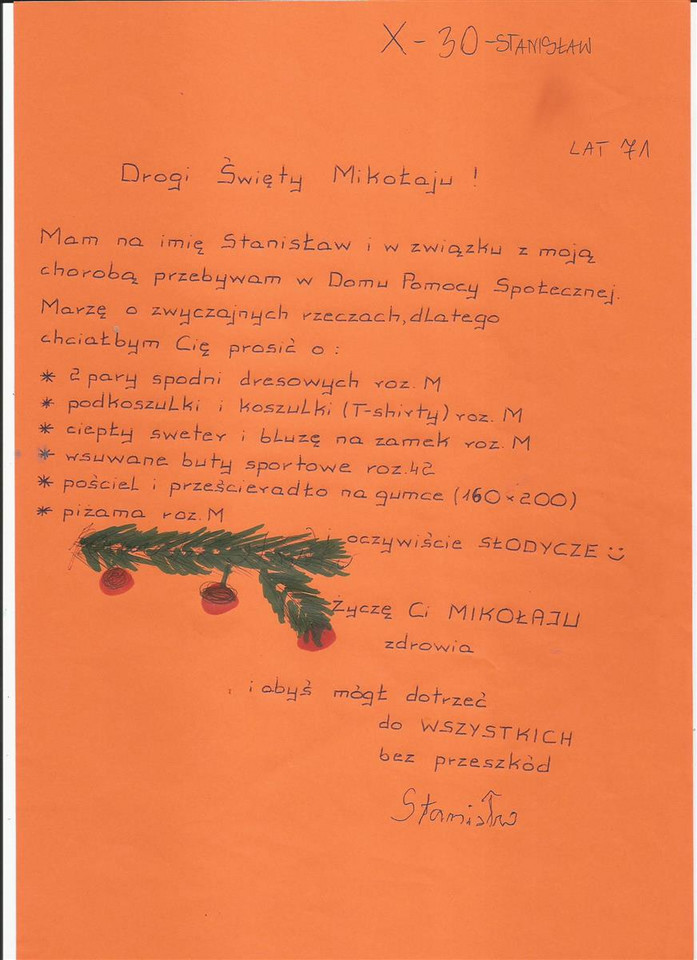 X-30-STANISŁAW
LAT 71
Drogi Święty Mikołaju!
Mam na imię Stanisław i w związku z moją
chorobą przebywam w Domu Pomocy Społecznej.
Marzę o zwyczajnych rzeczach, dlatego
chciałbym Cię prosić o:
* 2 pary spodni dresowych roz. M
* podkoszulki i koszulki (T-shirty) roz. M
* ciepły sweter i bluzę na zamek roz. M
* wsuwane buty sportowe roz.42
* pościel i prześcieradło na gumce (160x200)
* piżama roz. M
i oczywiście SŁODYCZE :)
Życzę Ci MIKOŁAJU
zdrowia
i abyś mógł dotrzeć
do WSZYSTKICH
bez przeszkód
Stanisław